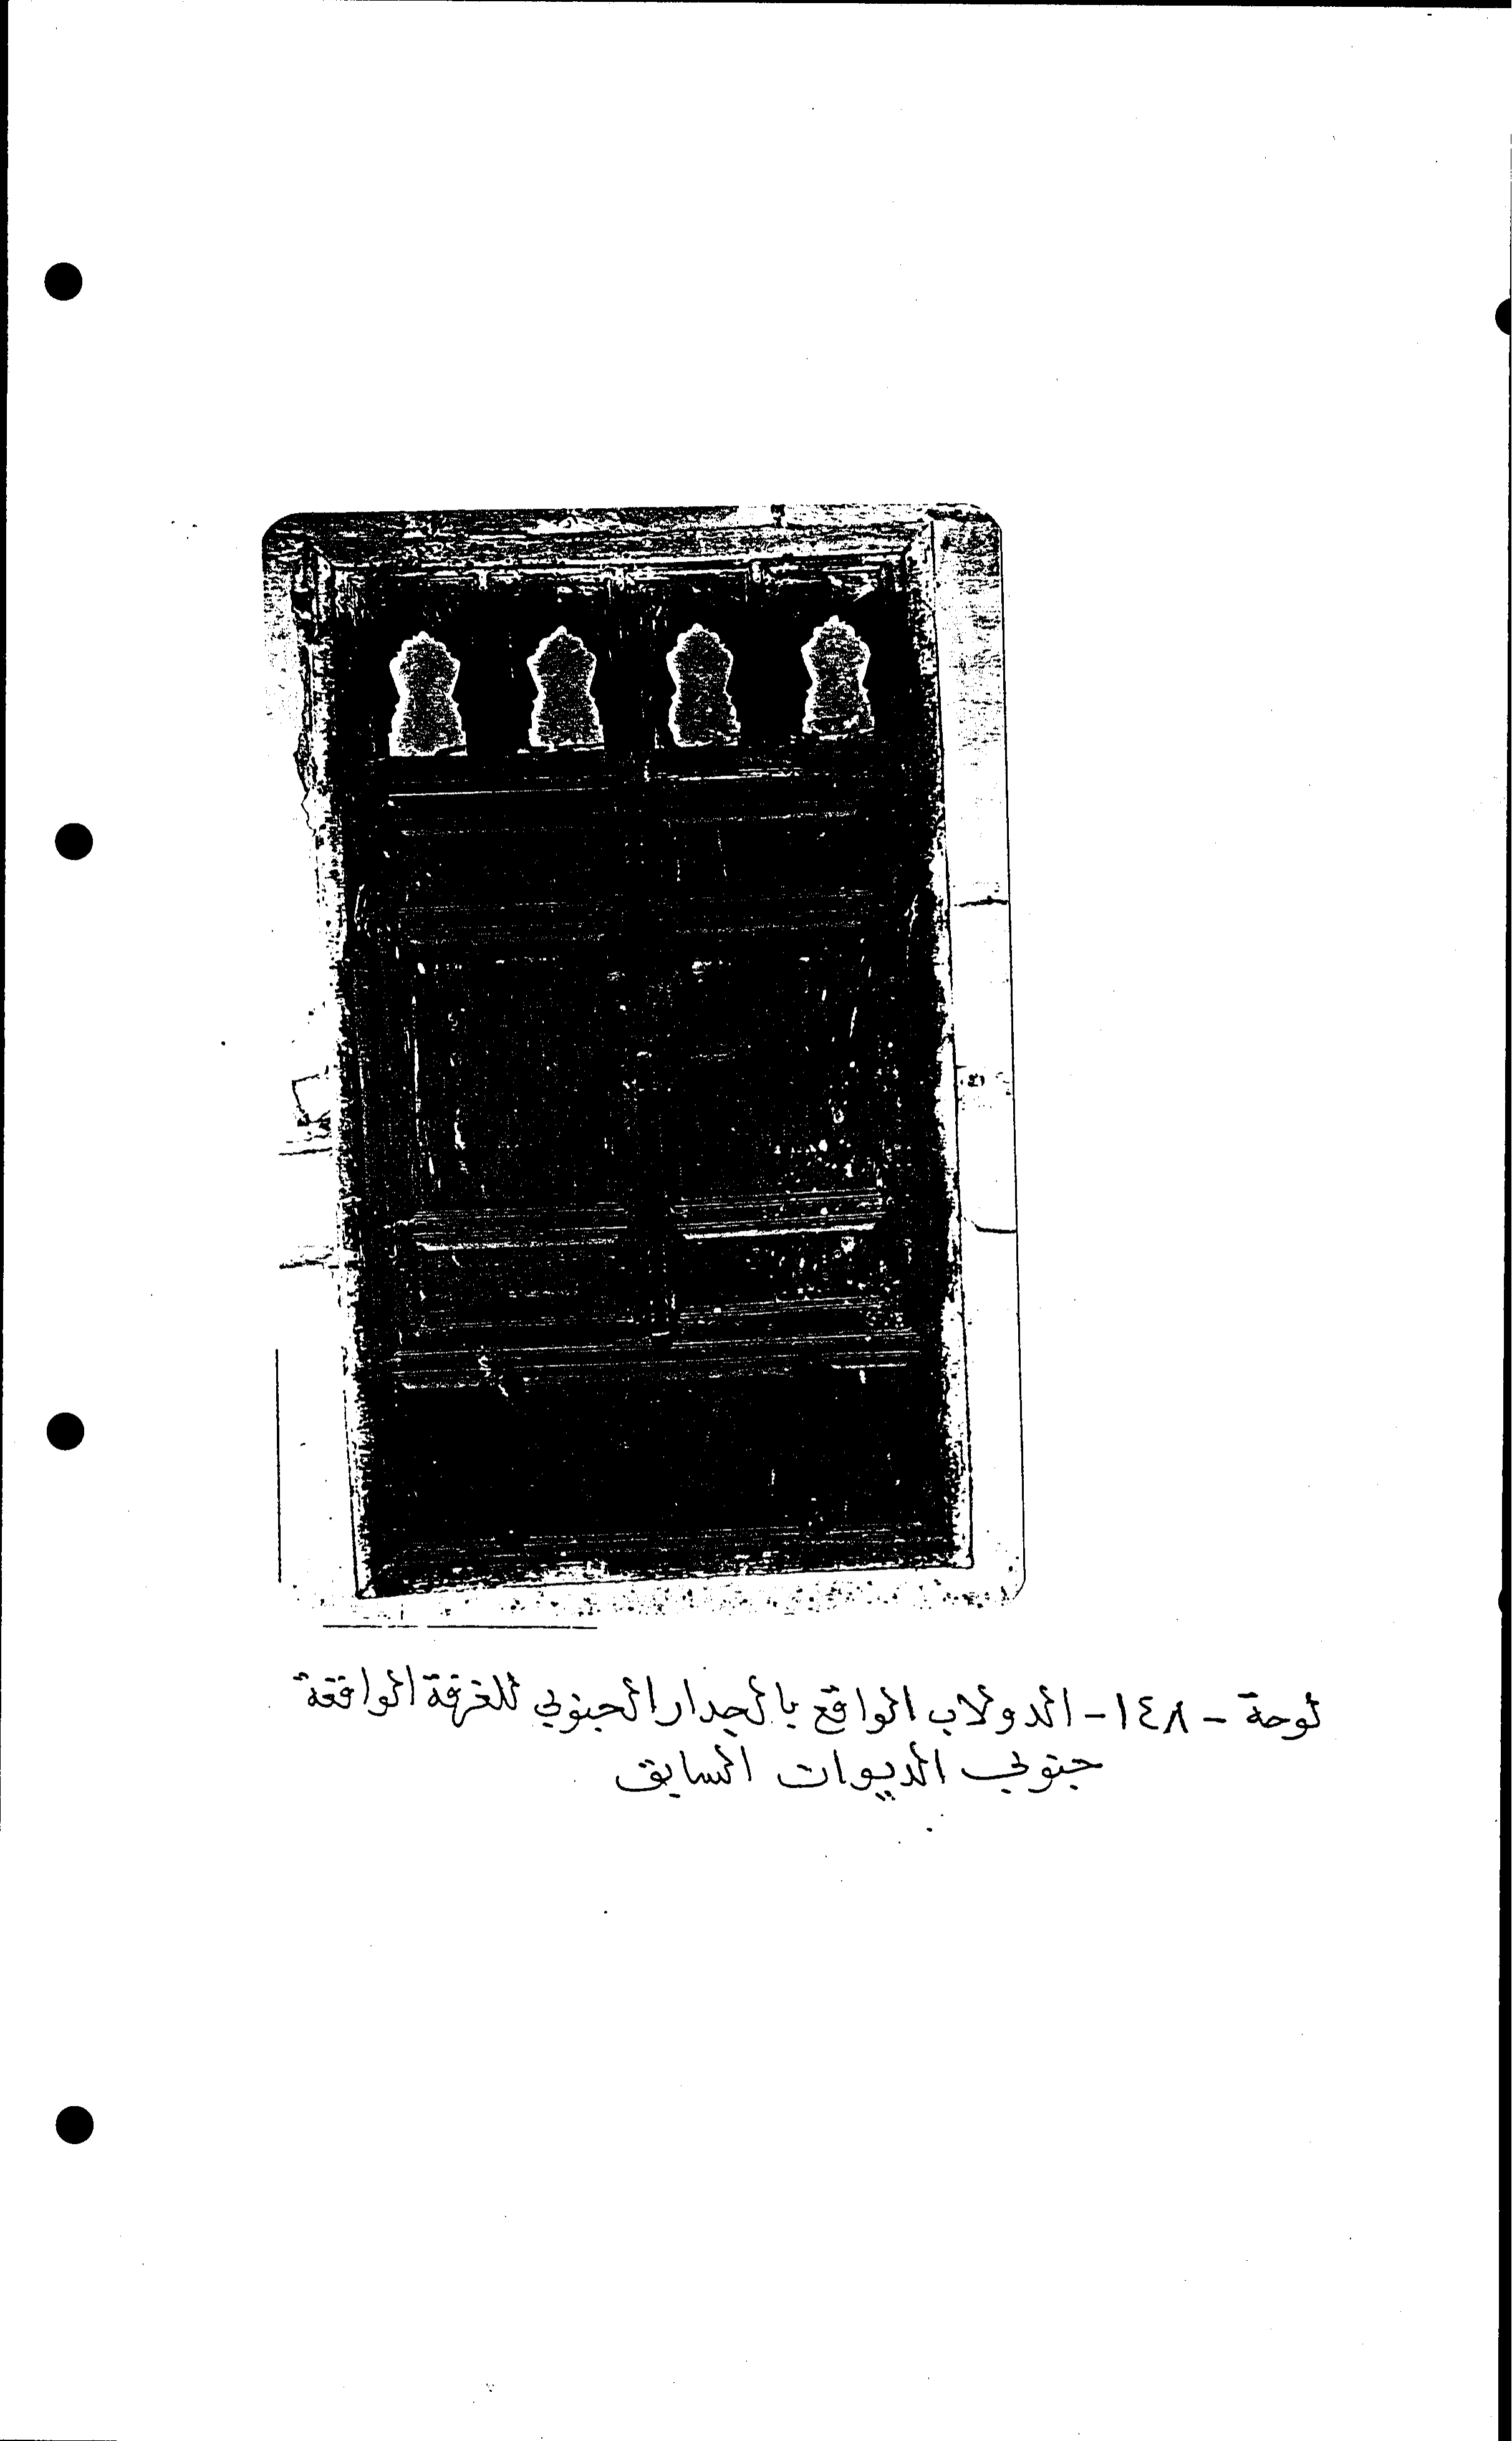 لوحة - ١٤٨ - الدولاب الواقع بالجدار الجنوبي للغرفة الواقعة
جنوبي الديوان السابق